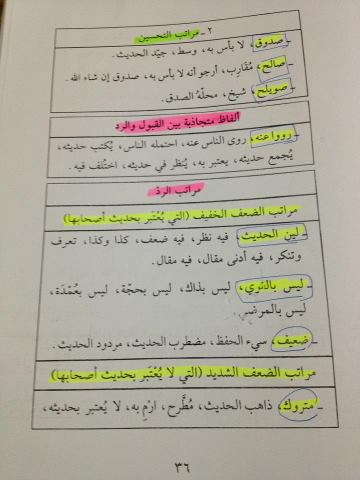 ٢ ـ مراتب التحسين
ـ صدوق، لا بأس به، وسط، جيّد الحديث.
ـ صالح، مُقَارِب، أرجو أنه لا بأس به، صدوق إن شاء الله.
ـ صويلح، شيخ، محلّهُ الصدق.
ألفاظ متجاذبة بين القبول والرد
ـ رووا عنه، روى الناس عنه، احتمله الناس، يُكتب حديثه،
يُجمع حديثه، يعتبر به، يُنظر في حديثه، اختُلف فيه.
مراتب الردّ
مراتب الضعف الخفيف (التي يُعْتَبر بحديث أصحابها)
ـ لين الحديث، فيه نظر، فيه ضعف، كذا وكذا، تعرف
وتنكر، فيه أدنى مقال، فيه مقال.
ـ ليس بالقوي، ليس بذاك، ليس بحجّة، ليس بعُمْدَة،
ليس بالمرضي.
ـ ضعيف، سيء الحفظ، مضطرب الحديث، مردود الحديث.
مراتب الضعف الشديد (التي لا يُعْتَبر بحديث أصحابها)
ـ متروك، ذاهب الحديث، مُطَّرح، ارْمِ به، لا يُعتبر بحديثه،
٣٦